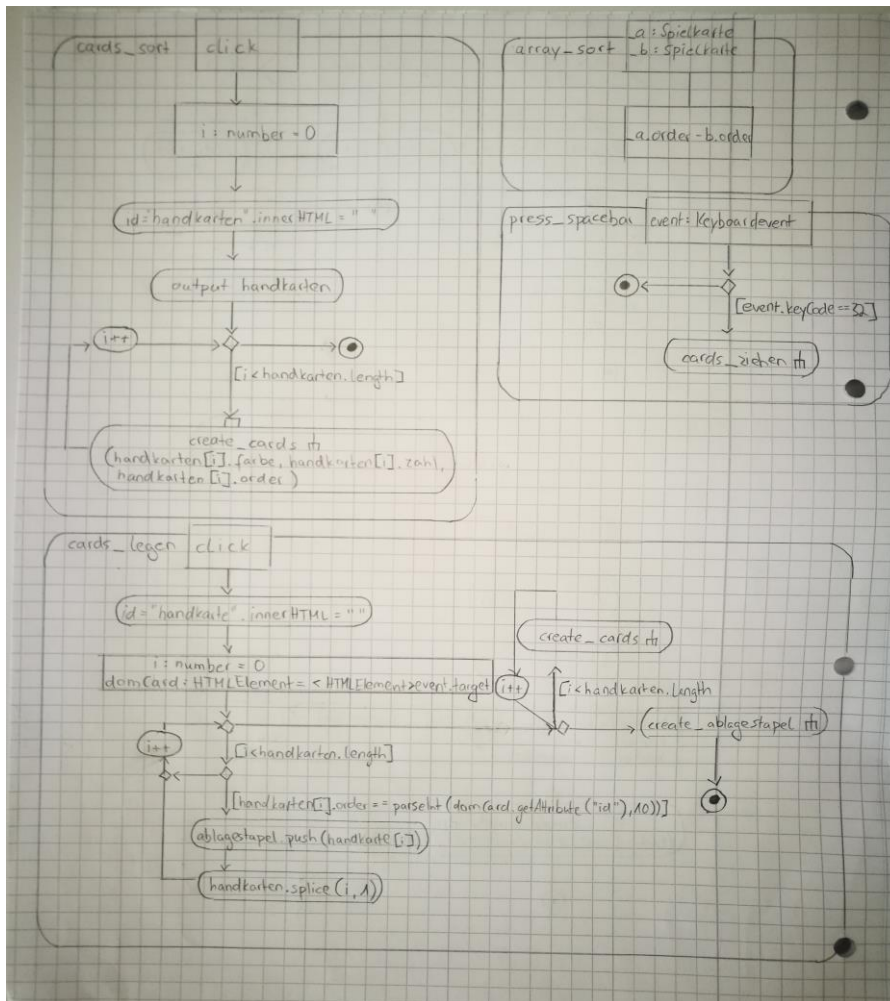 cards_sort
click
i : number = 0
id="handkarten".innerHTML = " "
output handkarten
i++
[i<handkarten.length]
create_cards
(handkarten[i].farbe, handkarten[i].zahl,
handkarten[i].order )
array_sort
_a : Spielkarte
_b : Spielkarte
_a.order - b.order
press_spacebar
event: Keyboardevent
[event.keyCode == 32]
cards_ziehen
cards_legen
click
id="handkarte".innerHTML = " "
i : number = 0
domCard : HTMLElement = < HTMLElement>event.target
i++
[i<handkarten.length]
[handkarten[i].order == parseInt (domCard.getAttribute ("id"),10))]
ablagestapel.push (handkarte [i])
handkarten.splice (i, 1)
create_cards
i++
[i<handkarten.length
create_ablagestapel